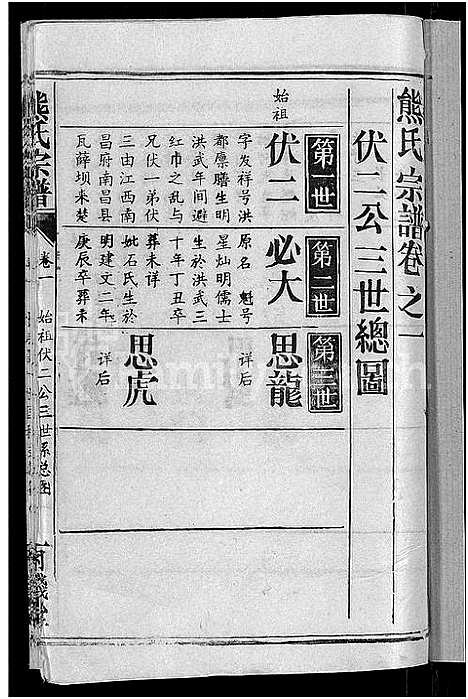 熊氏宗譜卷之一
伏二公三世總圖
第一世
第二世
第三世
始祖
伏二
字发祥号洪
都廪膳生明
洪武年间避
红巾之乱与
兄伏一弟伏
三由江西南
昌府南昌县
瓦薛坝来楚
必大
原名 魁号
星灿明儒士
生於洪武三
十年丁丑卒
葬未详
妣石氏生於
明建文二年
庚辰卒葬未
思龍
详后
思虎
详后
熊氏宗譜
卷一 始祖伏二公三世系总图